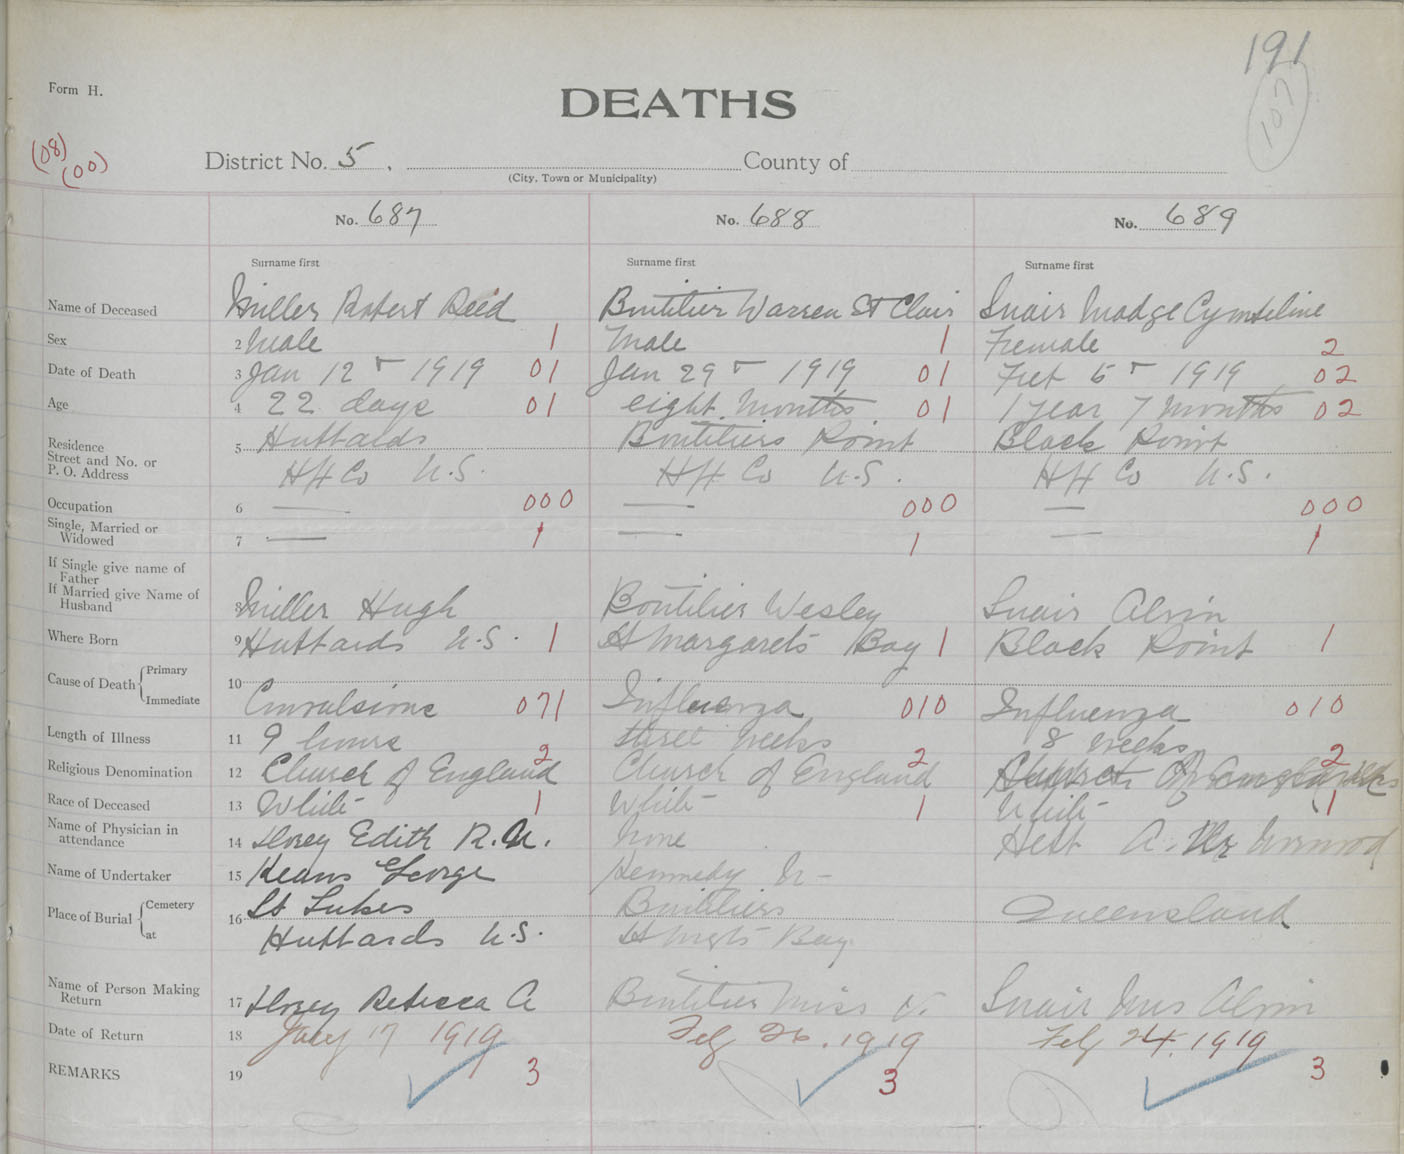 191
107
Form H.
DEATHS
(08)
(00)
District No. 5, County of
(City, Town or Municipality)
No. 687 No. 688 No. 689
Surname first Surname first Surname first
Name of Deceased Miller Robert Reid Boutilier Warren St Clair Snair Madge Cymbeline
Sex 2 Male 1 Male 1 Female 2
Date of Death 3 Jan 12 1919 01 Jan 29 1919 01 Feb 5 1919 02
Age 4 22 days 01 eight months 01 1 year 7 months 02
Residence 5 Hubbards Boutiliers Point Black Point
Street and No. or
P. O. Address Hfx Co N.S. Hfx Co N.S. Hfx Co N.S.
Occupation 6 — 000 — 000 — 000
Single, Married or
Widowed 7 — 1 — 1 — 1
If Single give name of
Father
If Married give Name of
Husband 8 Miller Hugh Boutilier Wesley Snair Alvin
Where Born 9 Hubbards N.S. 1 St Margarets Bay 1 Black Point 1
Cause of Death Primary 10
Immediate Convulsions 071 Influenza 010 Influenza 010
Length of Illness 11 9 hours three weeks 8 weeks
Religious Denomination 12 Church of England 2 Church of England 2 Church of England 2
Race of Deceased 13 White 1 White 1 White 1
Name of Physician in
attendance 14 Dorey Edith R.N. None A.
Name of Undertaker 15 Keans George Kennedy N
Place of Burial Cemetery 16 St Lukes Boutiliers Queensland
at Hubbards N.S. St Mgts Bay
Name of Person Making
Return 17 Dorey Rebecca A Boutilier Miss V. Snair Mrs Alvin
Date of Return 18 July 17 1919 Feb 26, 1919 Feb 24, 1919
REMARKS 19 3 3 3